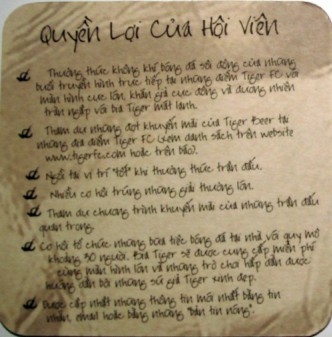 Quyền Lợi Của Hội Viên
Thưởng thức không khí bóng đá sôi động của những
buổi truyền hình trực tiếp tại những điểm Tiger FC với
màn hình cực lớn, khán giả cực đông và đương nhiên
tràn ngập với bia Tiger mát lạnh.
Tham dự những đợt khuyến mãi của Tiger Beer tại
những địa điểm Tiger FC (xem danh sách trên website
www.tigerfc.com hoặc trên báo).
Ngồi tại vị trí "tốt" khi thưởng thức trận đấu.
Nhiều cơ hội trúng những giải thưởng lớn.
Tham dự chương trình khuyến mãi của những trận đấu
quan trọng.
Cơ hội tổ chức những bữa tiệc bóng đá tại nhà với quy mô
khoảng 30 người. Bia Tiger sẽ được cung cấp miễn phí
cùng màn hình lớn và những trò chơi hấp dẫn được
hướng dẫn bởi những sứ giả Tiger xinh đẹp.
Được cập nhất những thông tin mới nhất bằng tin
nhắn, email hoặc bằng những "bản tin nóng".